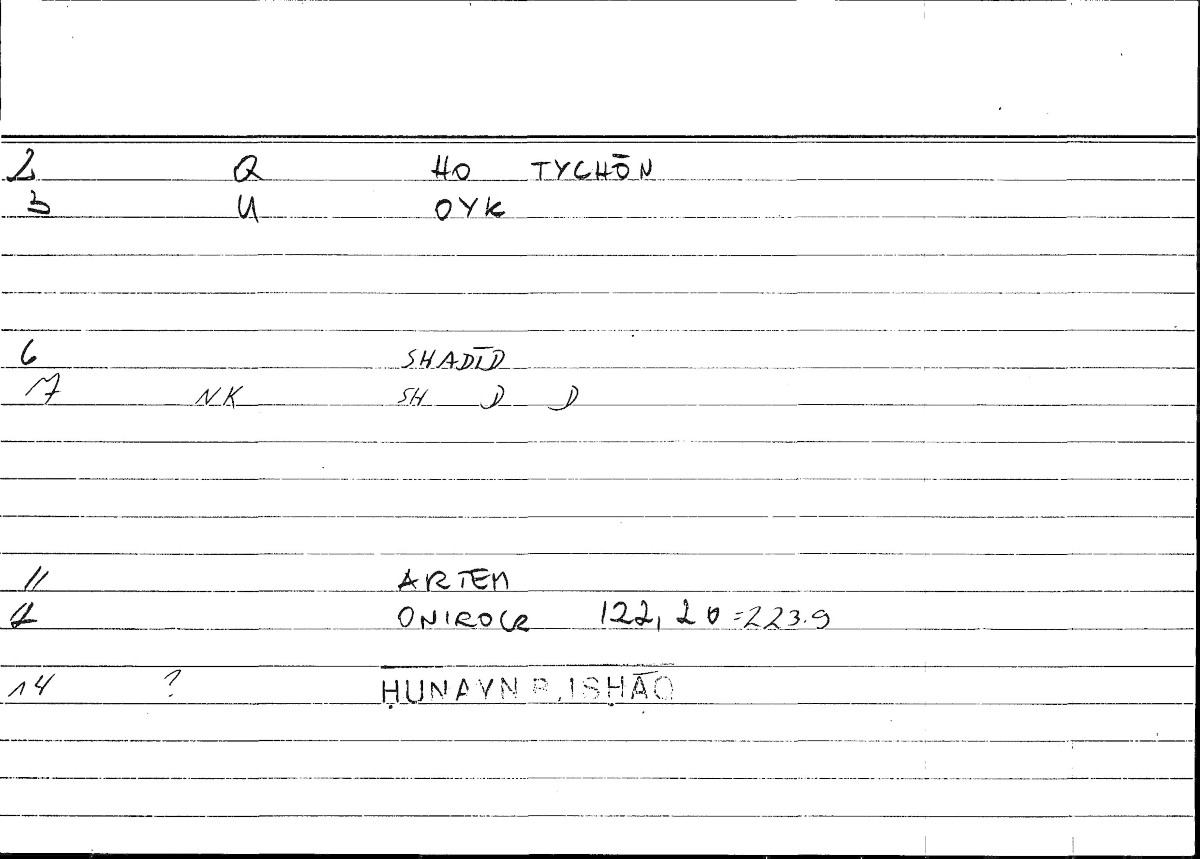 2 Q HO TYCHŌN
3 U OYK
6 SHADĪD
7 NK SH D D
11 ARTEM
2 ONIROCR 122, 20 =223.9
14 ? ḤUNAYN B. ISḤĀQ